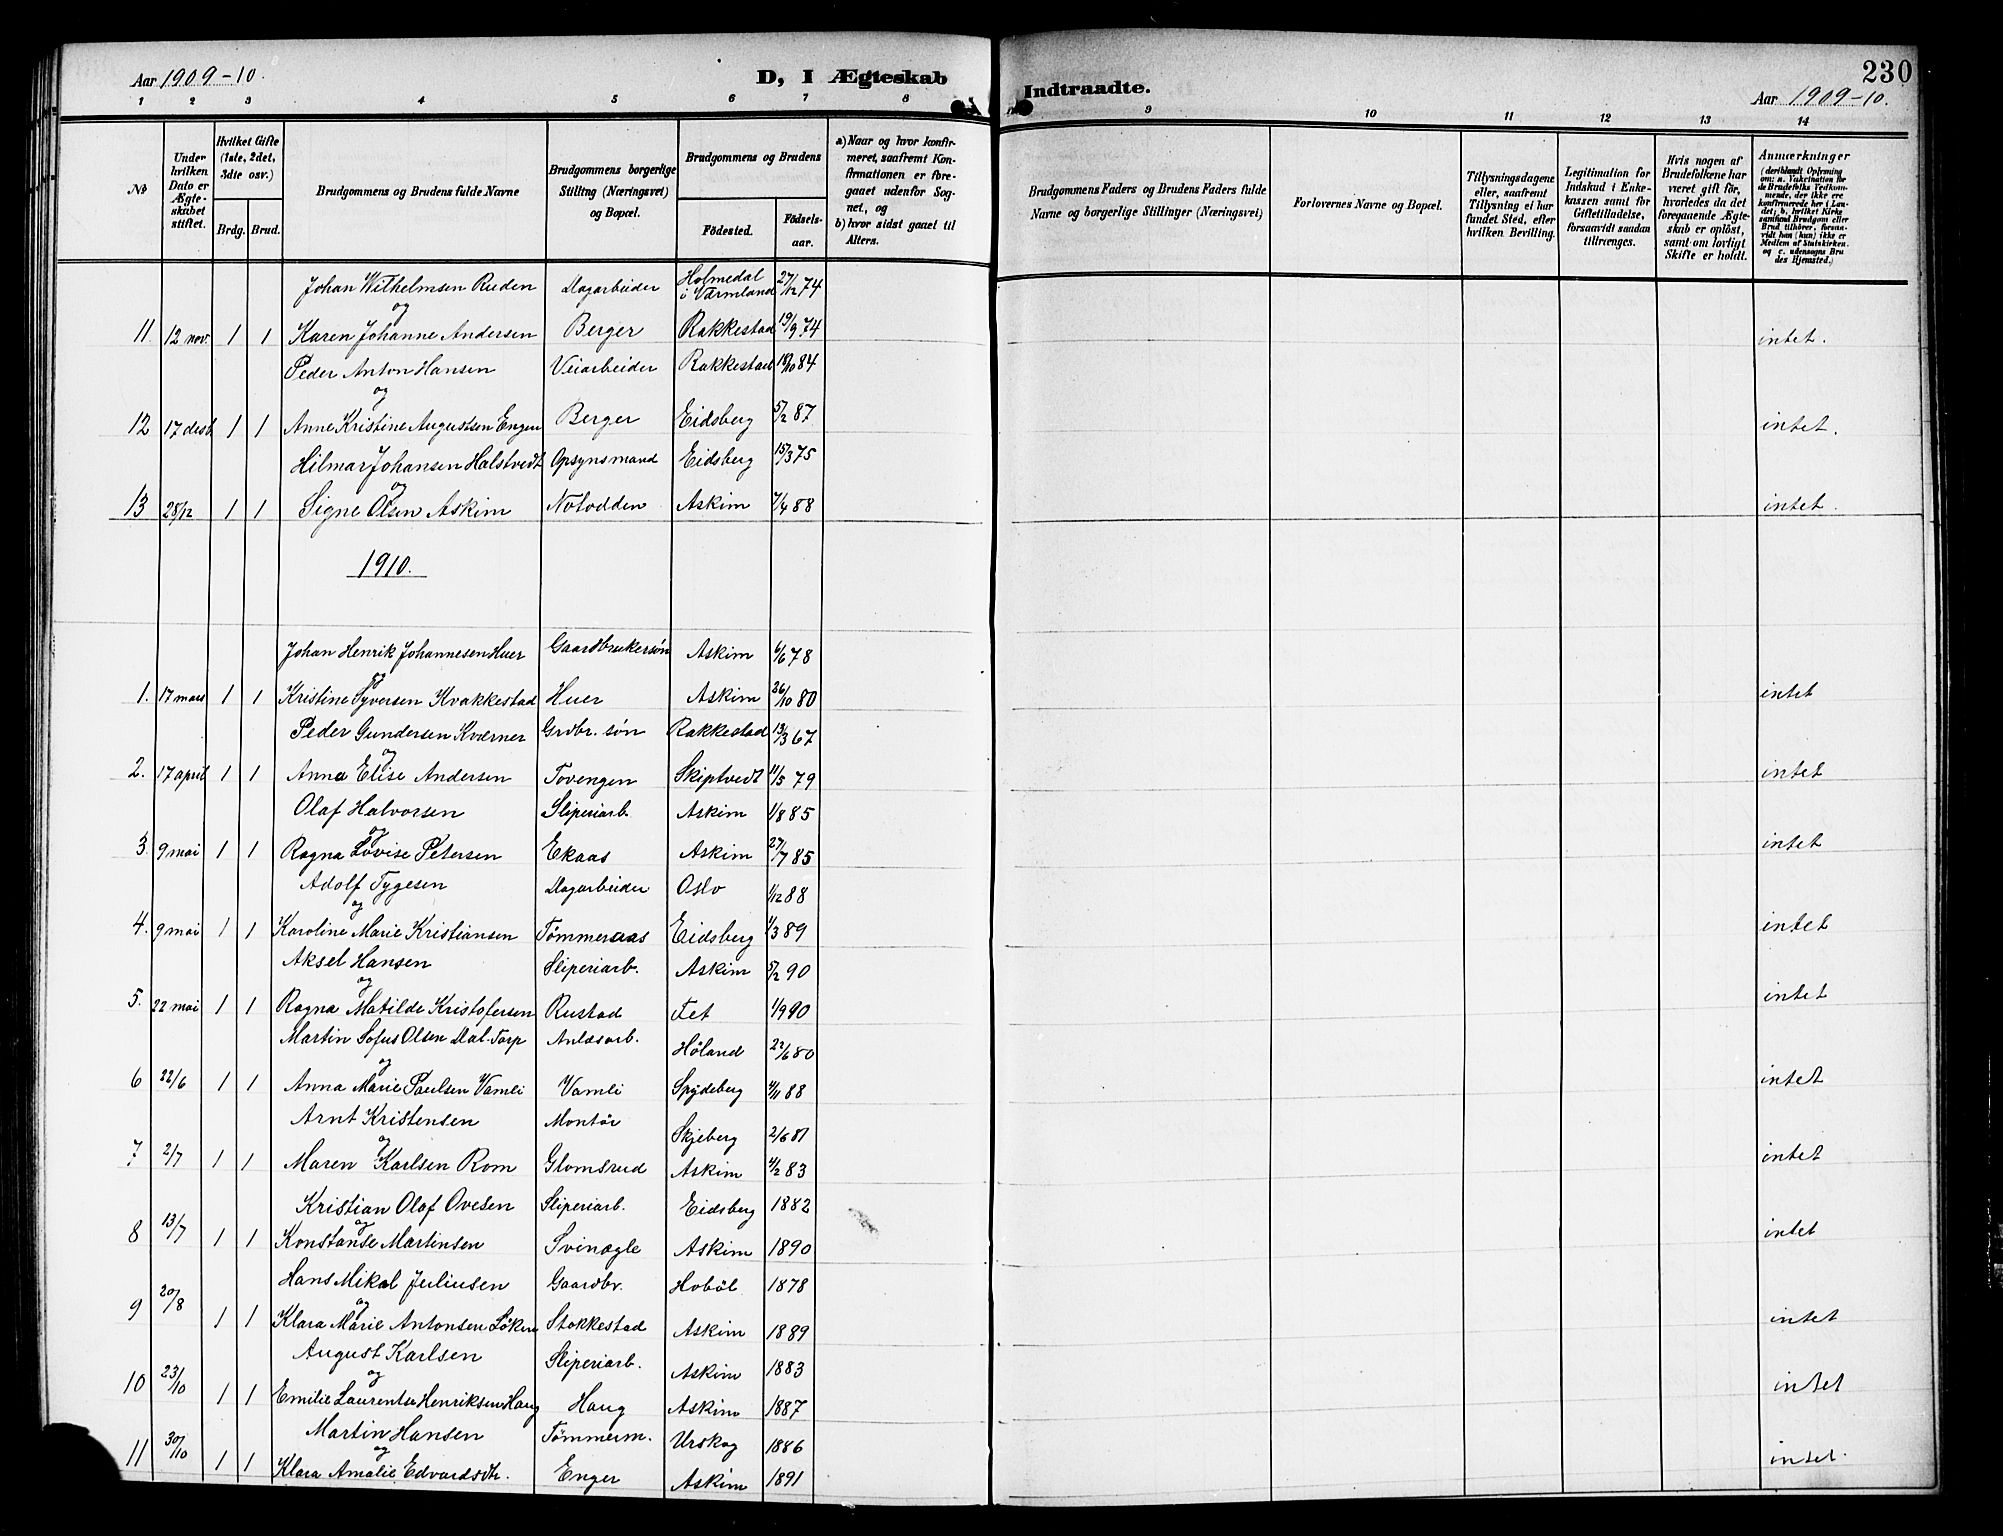 230
Aar 1909-10. D, I Ægteskab Indtraadte. Aar 1909-10.
1 2 3 4 5 6 7 8 9 10 11 12 13 14
No
Under hvilken Dato er Ægteskabet stiftet.
Hvilket Gifte (1ste, 2det, 3die osv.)
Brdg. Brud.
Brudgommens og Brudens fulde Navne
Brudgommens borgerlige Stilling (Næringsvei) og Bopæl.
Brudgommens og Brudens
Fødested. Fødselsaar.
a) Naar og hvor konfirmeret, saafremt Konfirmationen er foregaaet udenfor Sognet, og
b) hvor sidst gaaet til Alters.
Brudgommens Faders og Brudens Faders fulde Navne og borgerlige Stillinger (Næringsvei)
Forlovernes Navne og Bopæl.
Tillysningsdagene eller, saafremt Tillysning ei har fundet Sted, efter hvilken Bevilling.
Legitimation for Indskud i Enkekassen samt for Giftetilladelse, forsaavidt saadan tiltrænges.
Hvis nogen af Brudefolkene har været gift før, hvorledes da det foregaaende Ægteskab er opløst, samt om lovligt Skifte er holdt.
Anmærkninger (deriblandt Oplysning om: a. Vakcination for de Brudefolks Vedkommende, der ikke ere konfirmerede her i Landet; b. hvilket Kirkesamfund Brudgom eller Brud tilhører, forsaavidt han (hun) ikke er Medlem af Statskirken. og c. udensogns Brudes Hjemsted.)
Johan Wilhelmsen Ruden Dagarbeider Holmedal i Värmland 27/12 74
og
11. 12 nov. 1 1 Karen Johanne Andersen Berger Rakkestad 19/9 74 intet.
Peder Anton Hansen Veiarbeider Rakkestad 18/10 84
og
12 17 desb. 1 1 Anne Kristine Augustsen Engen Berger Eidsberg 5/2 87 intet.
Hilmar Johansen Halstvedt Opsynsmand Eidsberg 15/3 75
og
13 28/12 1 1 Signe Olsen Askim Notodden Askim 7/4 88 intet.
1910.
Johan Henrik Johannesen Huer Gaardbrukersøn Askim 6/6 78
og
1. 17 mars 1 1 Kristine Syversen Kvakkestad Huer Askim 26/10 80 intet
Peder Gundersen Kværner Grdbr. søn Rakkestad 13/3 67
og
2. 17 april 1 1 Anna Elise Andersen Tovengen Skiptvedt 11/5 79 intet
Olaf Halvorsen Sliperiarb. Askim 1/8 85
og
3. 9 mai 1 1 Ragna Lovise Petersen Ekaas Askim 27/7 85 intet
Adolf Tygesen Dagarbeider Oslo 1/12 88
og
4. 9 mai 1 1 Karoline Marie Kristiansen Tömmeraas Eidsberg 1/3 89 intet
Aksel Hansen Sliperiarb. Askim 5/2 90
og
5. 22 mai 1 1 Ragna Matilde Kristofersen Rustad Fet 1/9 90 intet
Martin Sofus Olsen Dal-Torp Anlæsarb. Høland 22/6 80
og
6 22/6 1 1 Anna Marie Paulsen Vamli Vamli Spydeberg 4/11 88 intet
Arnt Kristensen Montör Skjeberg 2/6 81
og
7. 2/7 1 1 Maren Karlsen Rom Glomsrud Askim 4/2 83 intet
Kristian Olaf Ovesen Sliperiarb. Eidsberg 1882
og
8 13/7 1 1 Konstanse Martinsen Svinægle Askim 1890 intet
Hans Mikal Juliusen Gaardbr. Hoböl 1878
og
9 20/8 1 1 Klara Marie Antonsen Löken Stokkestad Askim 1889 intet
August Karlsen Sliperiarb. Askim 1883
og
10 23/10 1 1 Emilie Laurentse Henriksen Haug Haug Askim 1887 intet
Martin Hansen Tömmerm. Urskog 1886
og
11 30/10 1 1 Klara Amalie Edvardsdtr. Enger Askim 1891 intet.